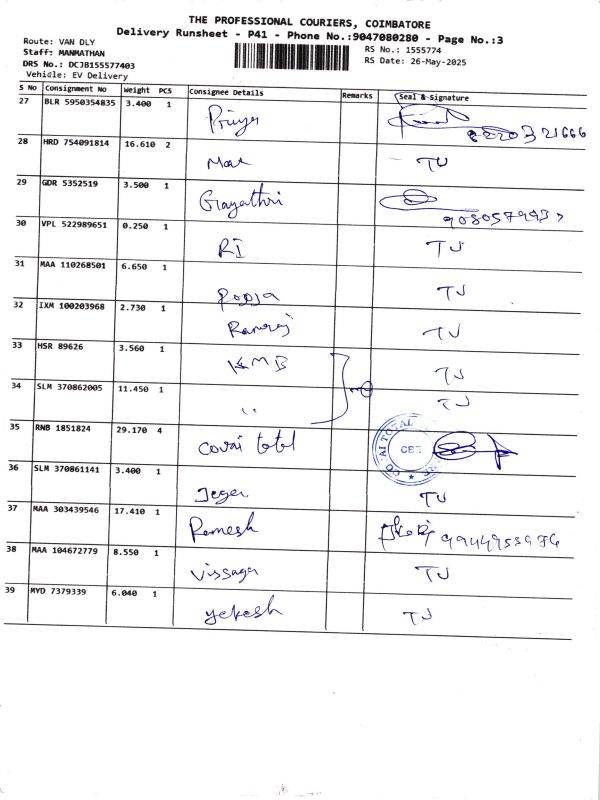 THE PROFESSIONAL COURIERS, COIMBATORE
Delivery Runsheet - P41 - Phone No.:9047080280 - Page No.:3
Route: VAN DLY
Staff: MANMATHAN
DRS No.: DCJB155577403
Vehicle: EV Delivery
RS No.: 1555774
RS Date: 26-May-2025
S No Consignment No Weight PCS Consignee Details Remarks Seal & Signature
27 BLR 5950354835 3.400 1 Priya
28 HRD 754091814 16.610 2 TJ
29 GDR 5352519 3.500 1 Gayathri
30 VPL 522989651 0.250 1 RI TJ
31 MAA 110268501 6.650 1 Pooja TJ
32 IXM 100203968 2.730 1 Ramraj TJ
33 HSR 89626 3.560 1 KMB TJ
34 SLM 370862005 11.450 1 " TJ
35 RNB 1851824 29.170 4 Covai total CBE
36 SLM 370861141 3.400 1 Jegan TJ
37 MAA 303439546 17.410 1 Ramesh
38 MAA 104672779 8.550 1 Vissaga TJ
39 MYD 7379339 6.040 1 Yekesh TJ